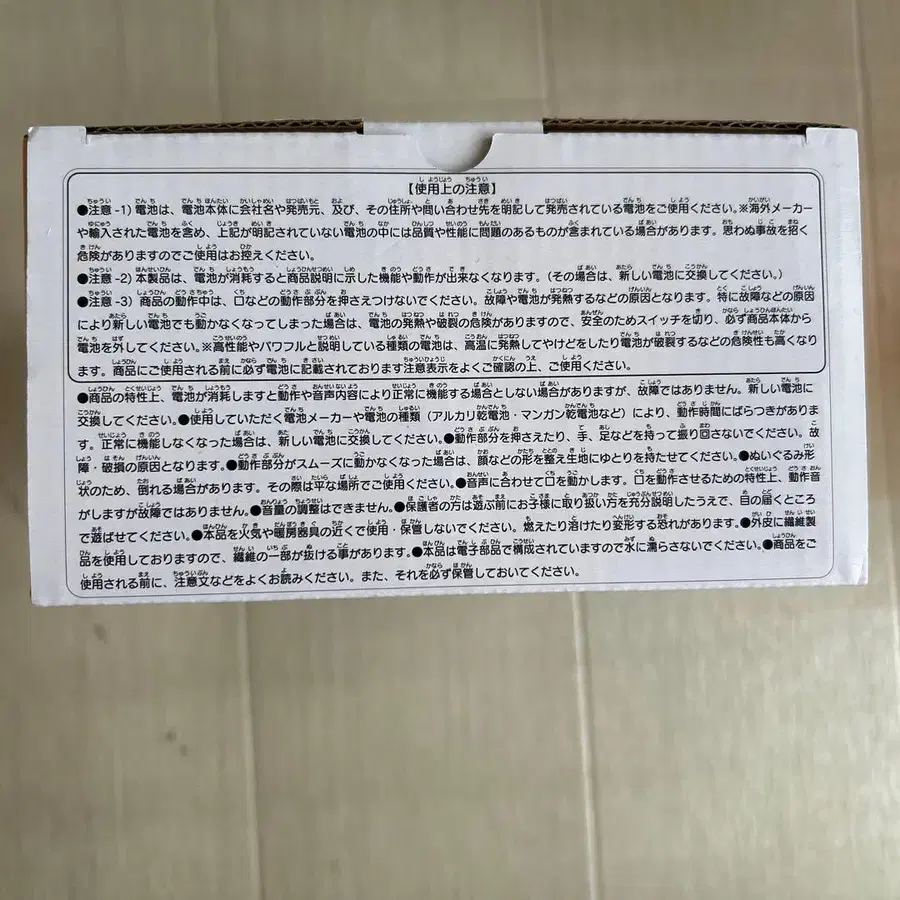 【使用上の注意】
●注意-1) 電池は、電池本体に会社名や発売元、及び、その住所や問い合わせ先を明記して発売されている電池をご使用ください。※海外メーカー
や輸入された電池を含め、上記が明記されていない電池の中には品質や性能に問題のあるものが含まれている場合があります。思わぬ事故を招く
危険がありますのでご使用はお控えください。
●注意-2) 本製品は、電池が消耗すると商品説明に示した機能や動作が出来なくなります。(その場合は、新しい電池に交換してください。)
●注意-3) 商品の動作中は、口などの動作部分を押さえつけないでください。故障や電池が発熱するなどの原因となります。特に故障などの原因
により新しい電池でも動かなくなってしまった場合は、電池の発熱や破裂の危険がありますので、安全のためスイッチを切り、必ず商品本体から
電池を外してください。※高性能やパワフルと説明している種類の電池は、高温に発熱してやけどをしたり電池が破裂するなどの危険性も高くなり
ます。商品にご使用される前に必ず電池に記載されております注意表示をよくご確認の上、ご使用ください。
●商品の特性上、電池が消耗しますと動作や音声内容により正常に機能する場合としない場合がありますが、故障ではありません。新しい電池に
交換してください。●使用していただく電池メーカーや電池の種類(アルカリ乾電池・マンガン乾電池など)により、動作時間にばらつきがありま
す。正常に機能しなくなった場合は、新しい電池に交換してください。●動作部分を押さえたり、手、足などを持って振り回さないでください。故
障・破損の原因となります。●動作部分がスムーズに動かなくなった場合は、顔などの形を整え生地にゆとりを持たせてください。●ぬいぐるみ形
状のため、倒れる場合があります。その際は平な場所でご使用ください。●音声に合わせて口を動かします。口を動作させるための特性上、動作音
がしますが故障ではありません。●音量の調整はできません。●保護者の方は遊ぶ前にお子様に取り扱い方を充分説明したうえで、目の届くところ
で遊ばせてください。●本品を火気や暖房器具の近くで使用・保管しないでください。燃えたり溶けたり変形する恐れがあります。●外皮に繊維製
品を使用しておりますので、繊維の一部が抜ける事があります。●本品は電子部品で構成されていますので水に濡らさないでください。●商品をご
使用される前に、注意文などをよくお読みください。また、それを必ず保管しておいてください。